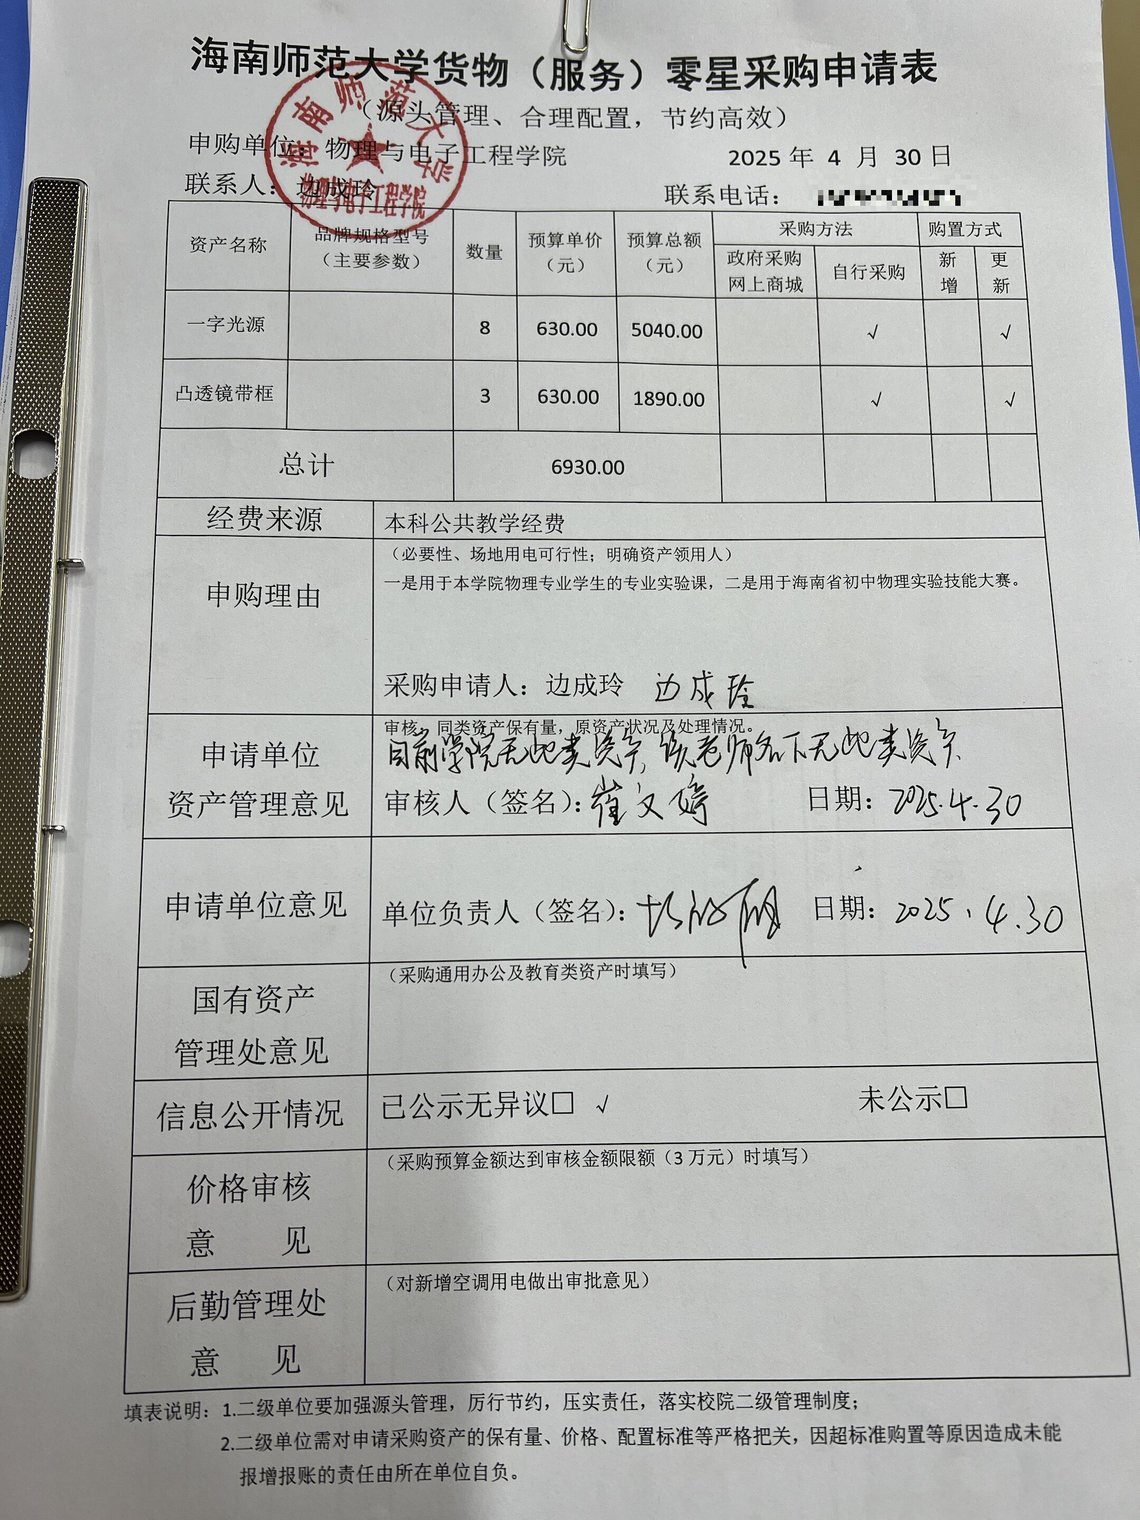 海南师范大学货物（服务）零星采购申请表
（源头管理、合理配置，节约高效）
申购单位：物理与电子工程学院
2025 年 4 月 30 日
联系人：边成玲
联系电话：
海南师范大学
物理与电子工程学院
资产名称 品牌规格型号（主要参数） 数量 预算单价（元） 预算总额（元） 采购方法 购置方式
政府采购网上商城 自行采购 新增 更新
一字光源 8 630.00 5040.00 √ √
凸透镜带框 3 630.00 1890.00 √ √
总计 6930.00
经费来源 本科公共教学经费
申购理由
（必要性、场地用电可行性；明确资产领用人）
一是用于本学院物理专业学生的专业实验课，二是用于海南省初中物理实验技能大赛。
采购申请人：边成玲 边成玲
申请单位
资产管理意见
审核：同类资产保有量，原资产状况及处理情况。
目前学院无此类资产，该老师名下无此类资产.
审核人（签名）：崔文婷 日期：2025.4.30
申请单位意见
单位负责人（签名）： 日期：2025.4.30
国有资产
管理处意见
（采购通用办公及教育类资产时填写）
信息公开情况 已公示无异议□ √ 未公示□
价格审核
意 见
（采购预算金额达到审核金额限额（3 万元）时填写）
后勤管理处
意 见
（对新增空调用电做出审批意见）
填表说明：1.二级单位要加强源头管理，厉行节约，压实责任，落实校院二级管理制度；
2.二级单位需对申请采购资产的保有量、价格、配置标准等严格把关，因超标准购置等原因造成未能
报增报账的责任由所在单位自负。